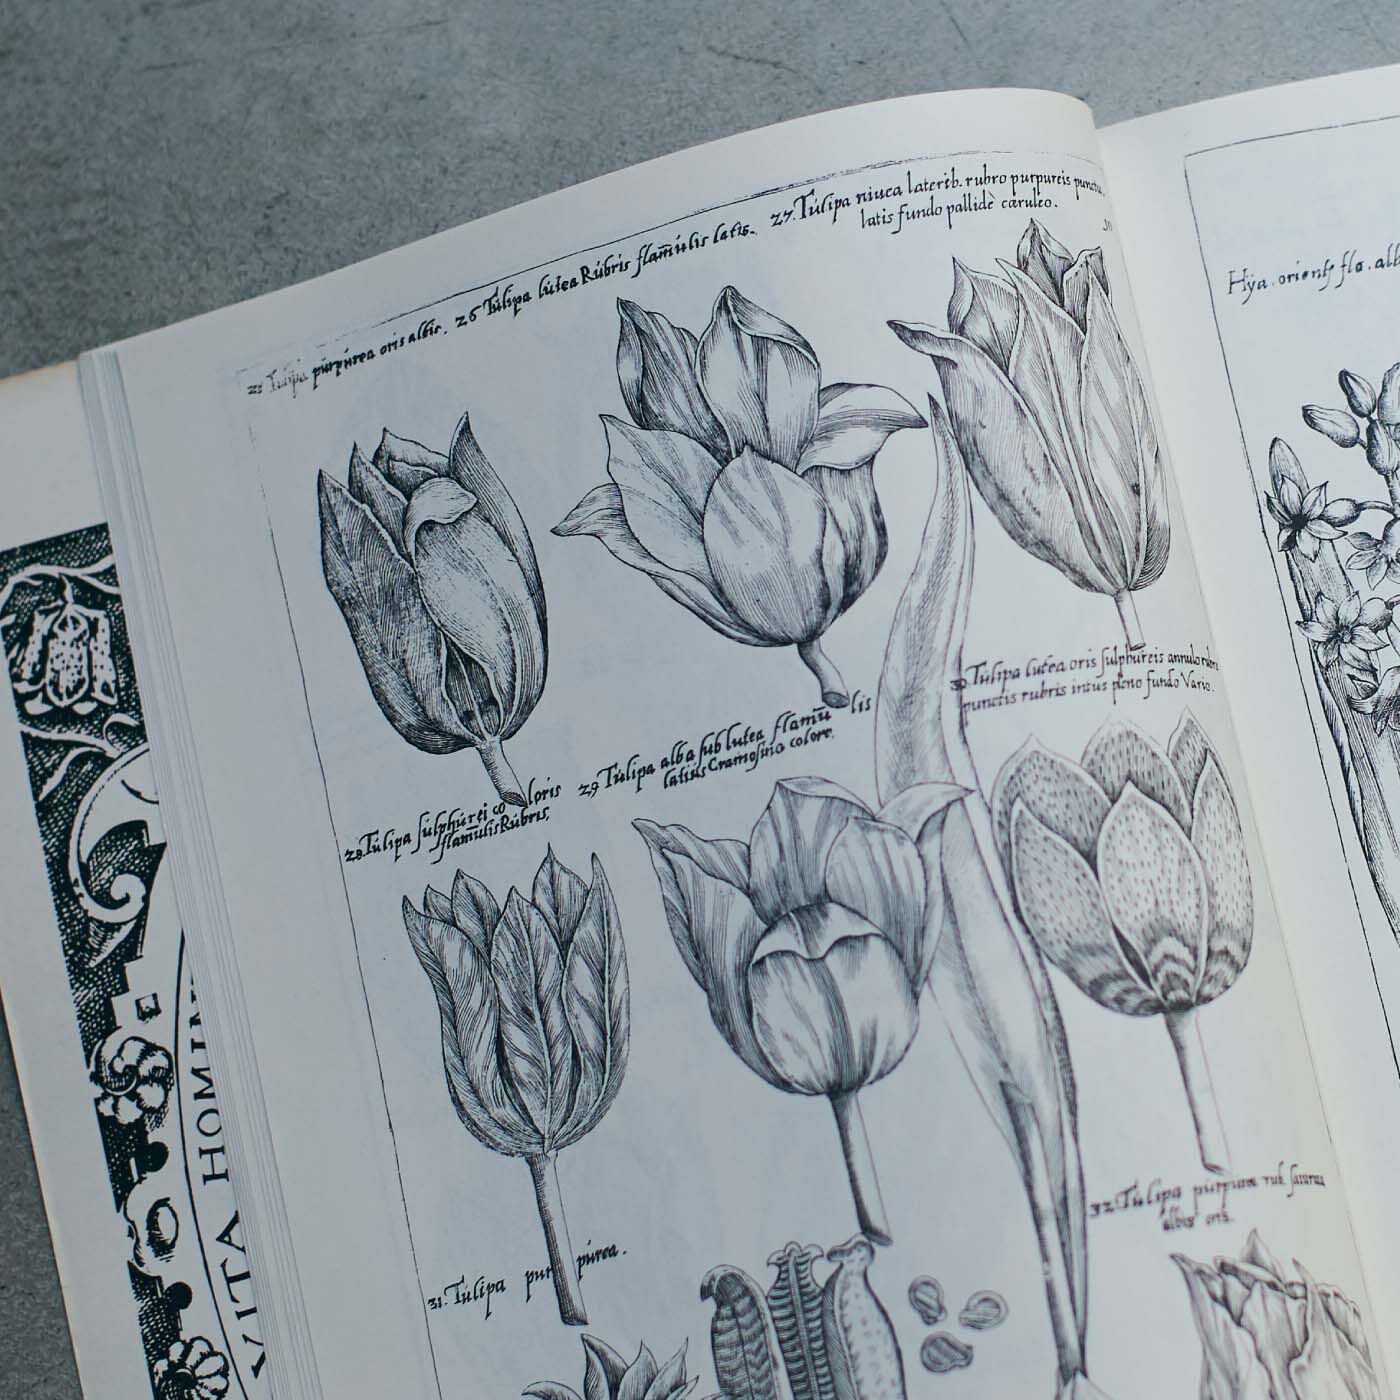 25 Tulipa púrpúrea oris albis.
26 Túlipa lútea Rúbris flam̄úlis latis.
27. Túlipa niuea laterib. rubro purpureis punctu
latis fundo pallidè cæruleo.
28 Túlipa súlphúrei co loris
flam̄ulis Rúbris,
29 Túlipa alba sub lutea flamū lis
latius Cramosino colore.
30 Túlipa lutea oris sulphūreis annulo rubro
punctis rubris intus pleno fundo Vario.
31. Túlipa pur púrea.
32. Túlipa purpurea rub. saturas
albis oris.
Hÿa. orient flo. alb
VITA HOMIN